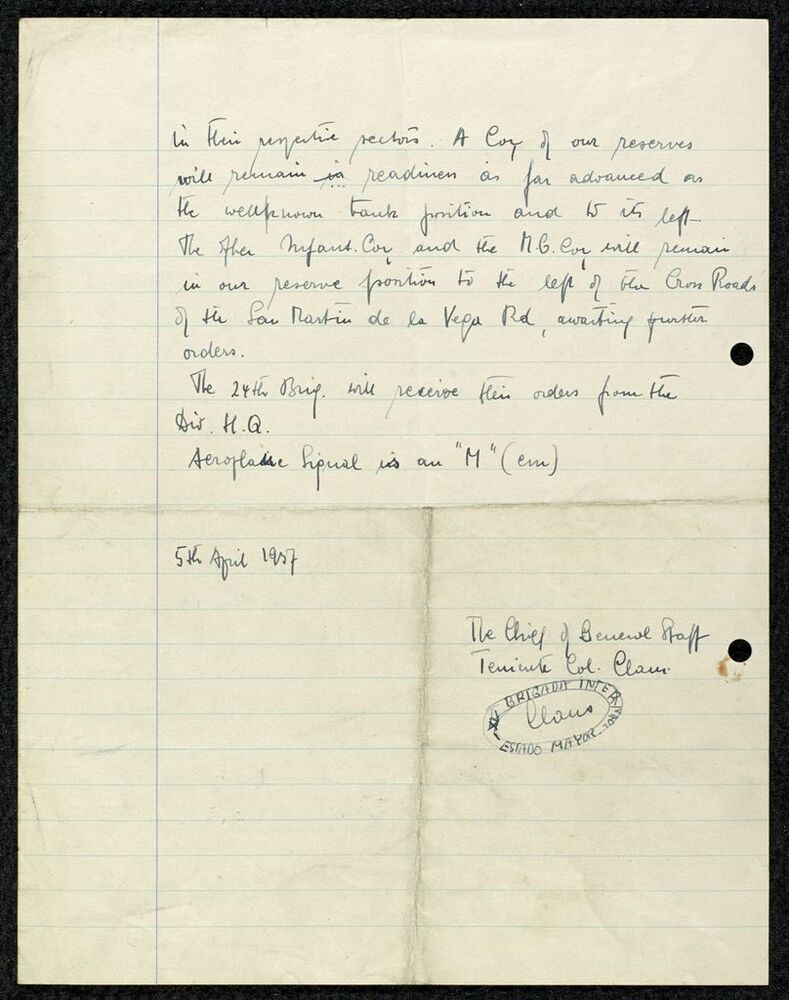 in their respective sectors. A Coy of our reserves
will remain in readiness as far advanced as
the wellknown tank position and to its left.
The other Infant. Coy and the M.G. Coy will remain
in our reserve position to the left of the Cross Roads
of the San Martin de la Vega Rd, awaiting further
orders.
The 24th Brig. will receive their orders from the
Div. H.Q.
Aeroplane Signal is an "M" (em)
5th April 1937
The Chief of General Staff
Teniente Col. Claus.
XV BRIGADA INTER
Claus
ESTADO MAYOR